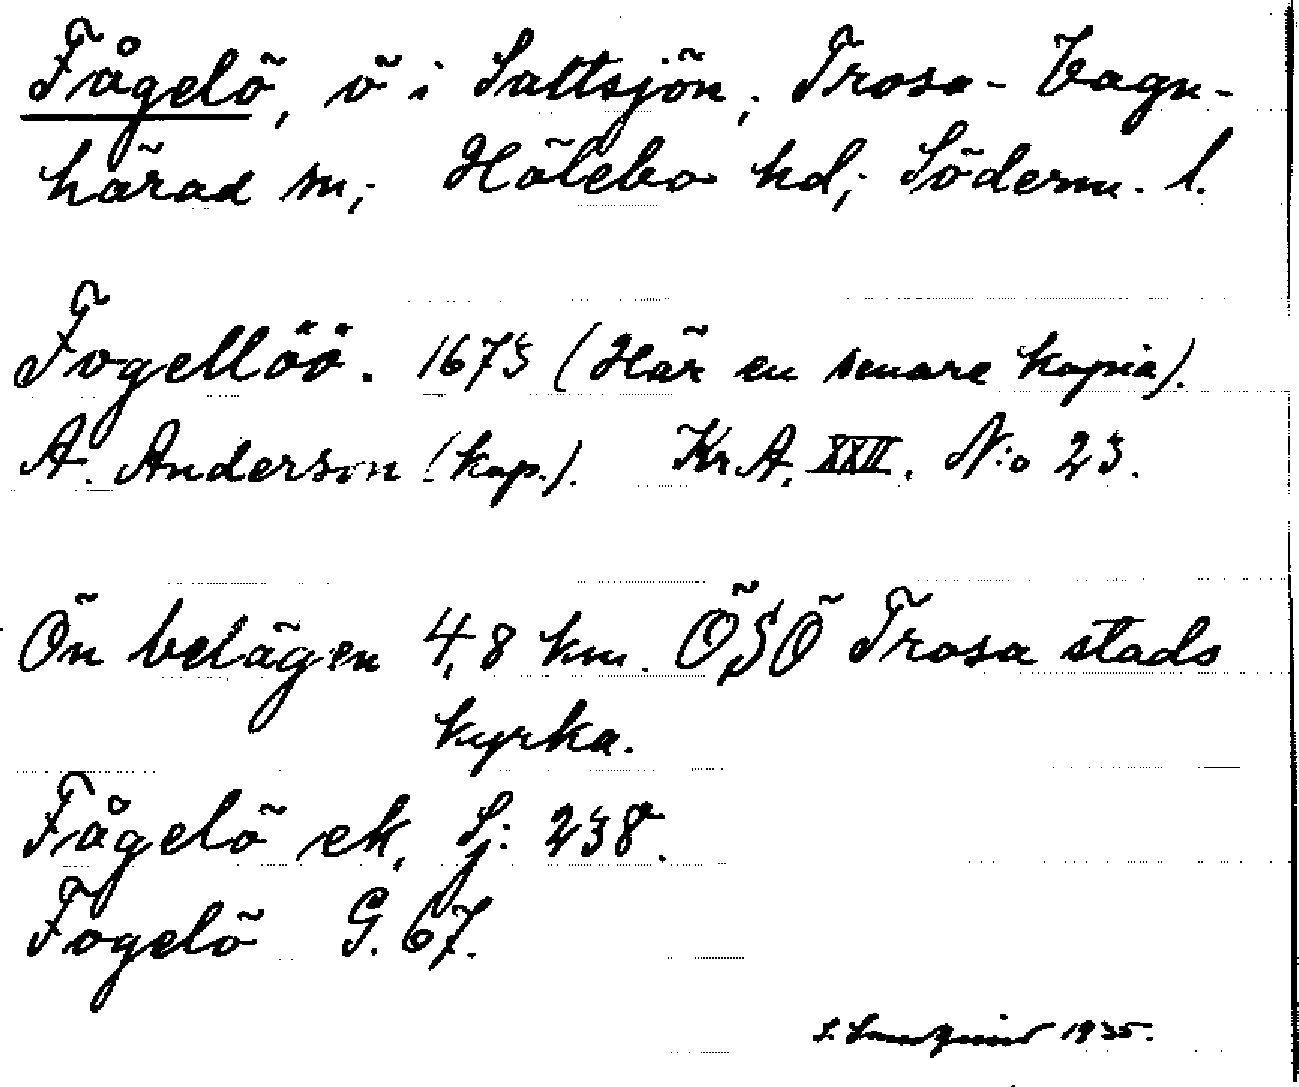 Fågelö, ö i Saltsjön, Trosa-Vagn-
härad sn, Hölebo hd, Söderm. l.
Fogellöö. 1673 (Här en senare kopia).
A. Anderson (kop.). Kr.A. XXII. N:o 23.
Ön belägen 4,8 km. ÖSÖ Trosa stads
kyrka.
Fågelö ek, Sj: 238.
Fogelö G. 67.
1935.